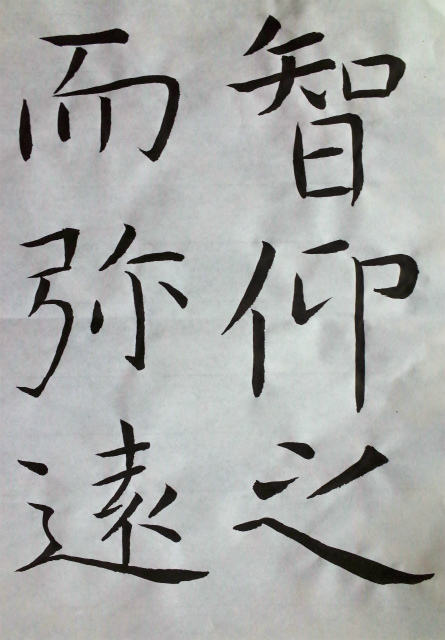 智仰之
而弥遠